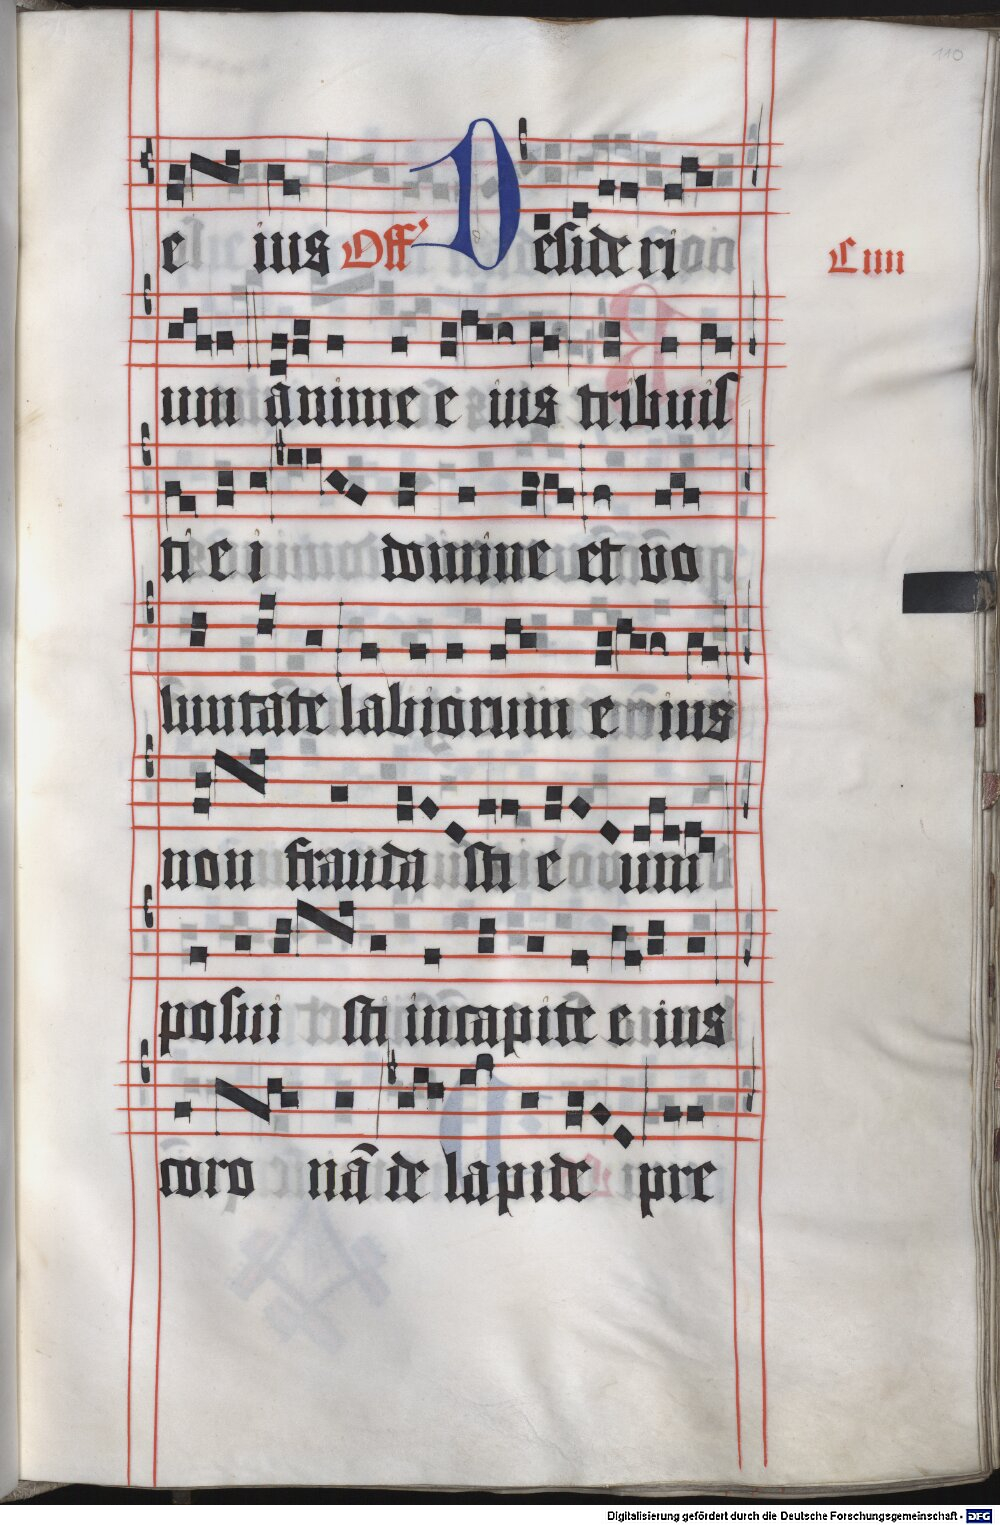 110
e ius Off' Desideri
C iiii
um anime e ius tribuis
ti e i domine et vo
luntate labiorum e ius
non frauda sti e um
posui sti in capite e ius
coro nã de lapide pre
Digitalisierung gefördert durch die Deutsche Forschungsgemeinschaft - DFG